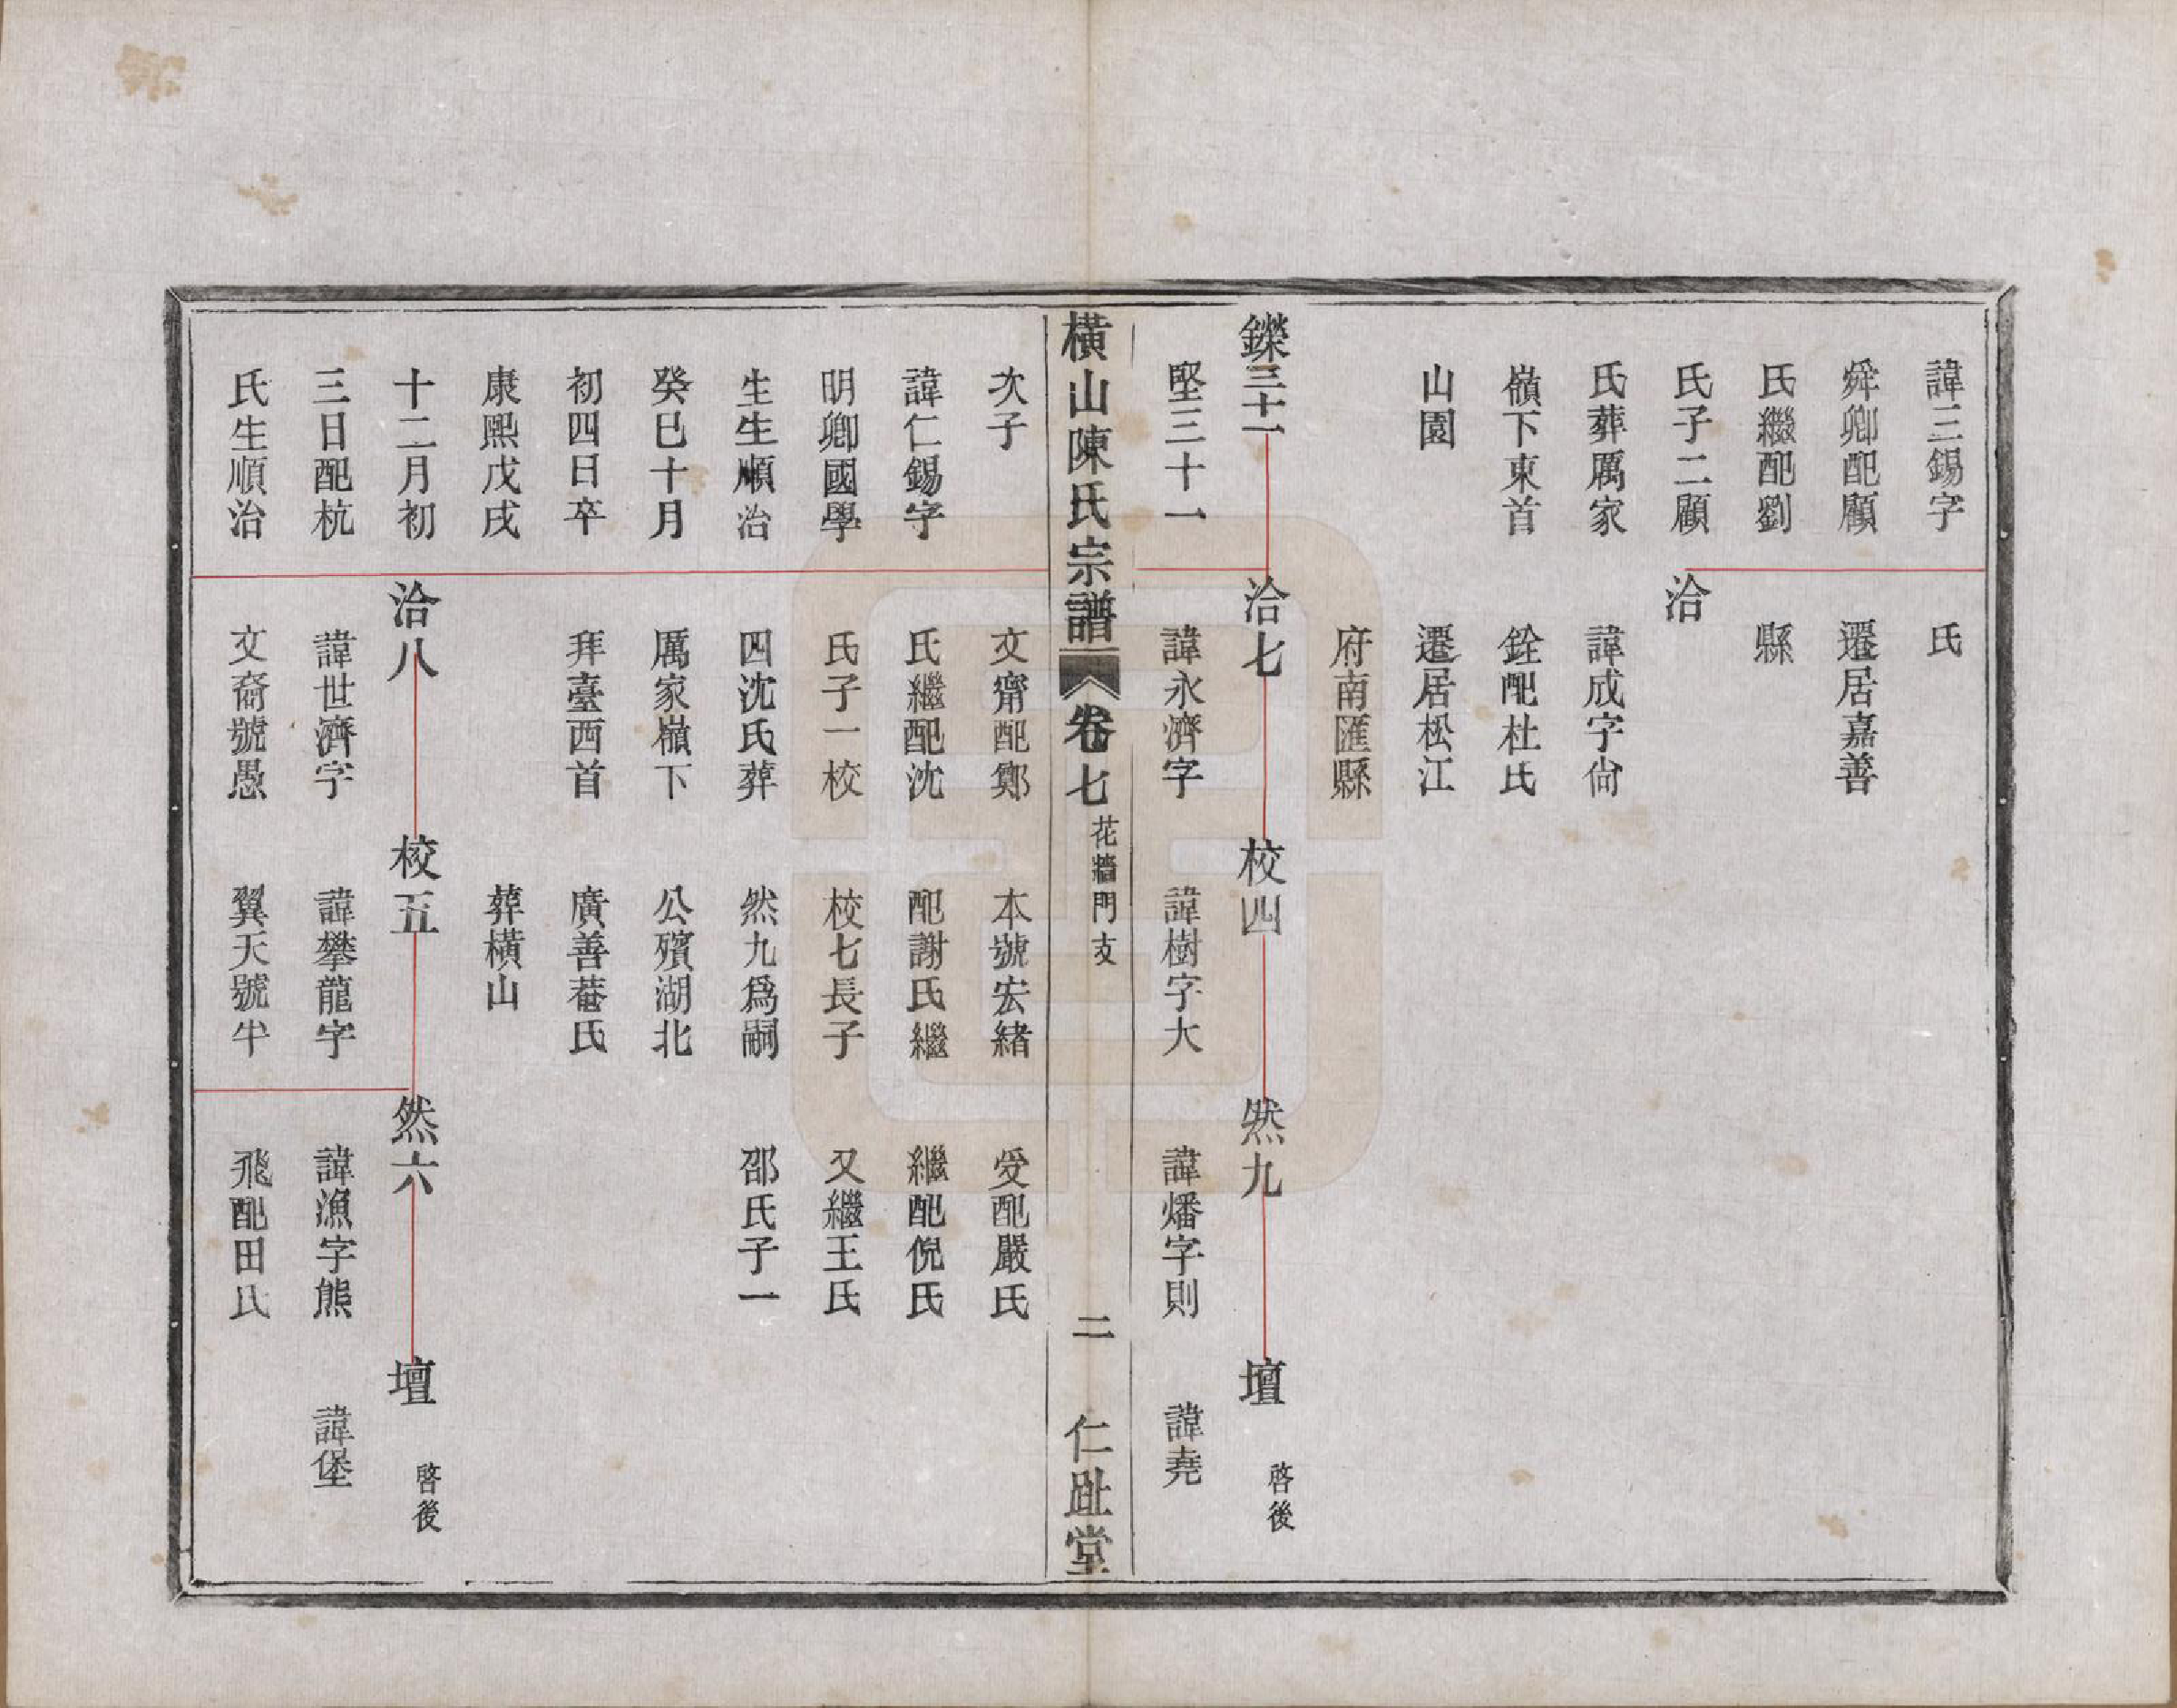 諱三錫字
舜卿配顧
氏繼配劉
氏子二顧
氏葬厲家
嶺下東首
山園
氏
遷居嘉善
縣
洽
諱成字尙
銓配杜氏
遷居松江
府南匯縣
鑅三十一
堅三十一
洽七
諱永濟字
校四
諱樹字大
然九
諱燔字則
壇 啓後
諱堯
橫山陳氏宗譜 卷七 花牆門支 二 仁趾堂
次子
諱仁錫字
明卿國學
生生順治
癸巳十月
初四日卒
康熙戊戌
十二月初
三日配杭
氏生順治
文齋配鄭
氏繼配沈
氏子一校
四沈氏葬
厲家嶺下
拜臺西首
本號宏緒
配謝氏繼
校七長子
然九爲嗣
公殯湖北
廣善菴氏
葬橫山
受配嚴氏
繼配倪氏
又繼王氏
邵氏子一
洽八
諱世濟字
文裔號愚
校五
諱攀龍字
翼天號半
然六
諱漁字熊
飛配田氏
壇 啓後
諱堡